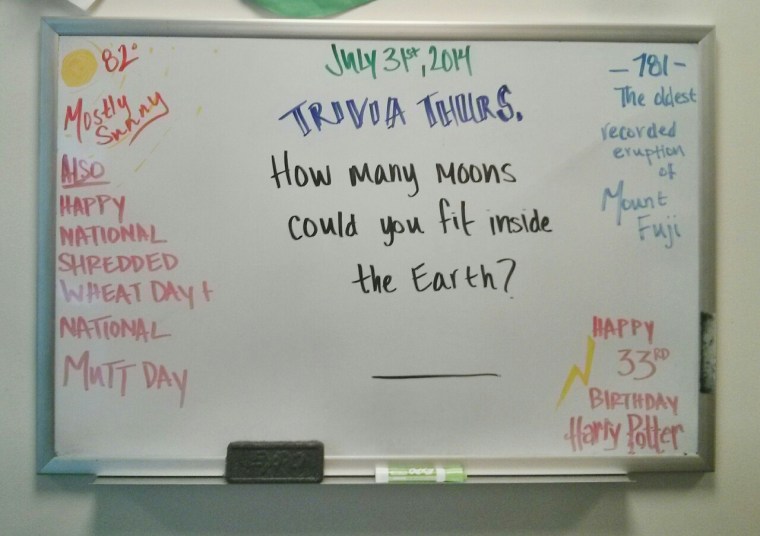 82°
Mostly
Sunny
ALSO
HAPPY
NATIONAL
SHREDDED
WHEAT DAY +
NATIONAL
MUTT DAY
JULY 31st, 2014
TRIVIA THURS.
How many moons
could you fit inside
the Earth?
- 781 -
The oldest
recorded
eruption
of
Mount
Fuji
HAPPY
33RD
BIRTHDAY
Harry Potter
EXPO